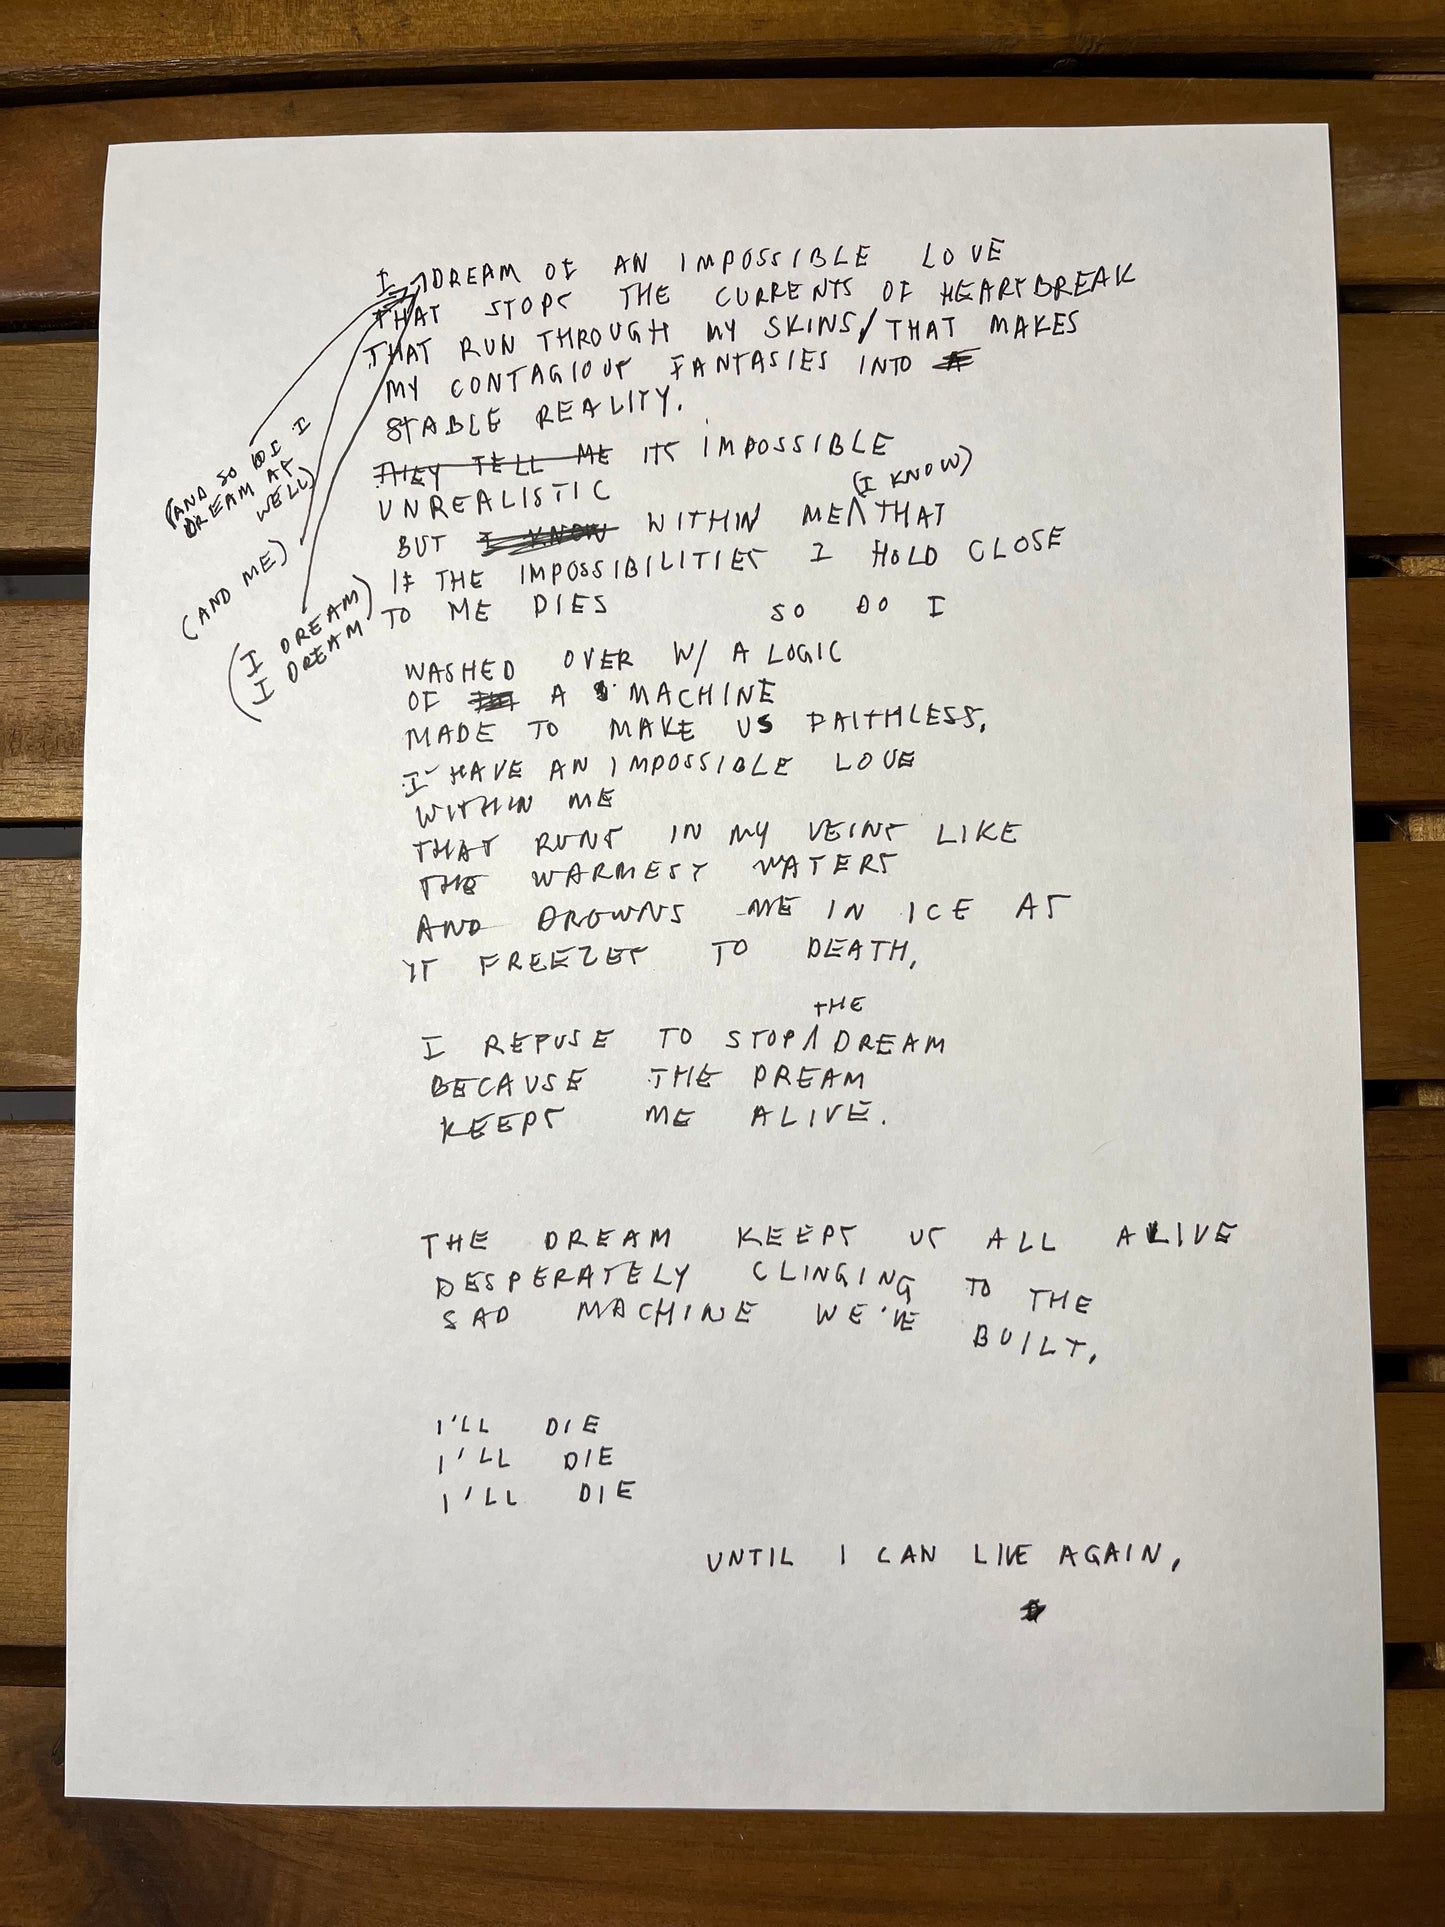 I DREAM OF AN IMPOSSIBLE LOVE
THAT STOPS THE CURRENTS OF HEARTBREAK
THAT RUN THROUGH MY SKINS/THAT MAKES
MY CONTAGIOUS FANTASIES INTO
STABLE REALITY.
THEY TELL ME ITS IMPOSSIBLE
UNREALISTIC
(I KNOW)
BUT I KNOW WITHIN ME THAT
IF THE IMPOSSIBILITIES I HOLD CLOSE
TO ME DIES SO DO I
(AND SO DO I
DREAM AS
WELL)
(AND ME)
(I DREAM)
I DREAM
WASHED OVER W/ A LOGIC
OF A MACHINE
MADE TO MAKE US FAITHLESS,
I HAVE AN IMPOSSIBLE LOVE
WITHIN ME
THAT RUNS IN MY VEINS LIKE
THE WARMEST WATERS
AND DROWNS ME IN ICE AS
IT FREEZES TO DEATH,
THE
I REFUSE TO STOP DREAM
BECAUSE THE DREAM
KEEPS ME ALIVE.
THE DREAM KEEPS US ALL ALIVE
DESPERATELY CLINGING TO THE
SAD MACHINE WE'VE BUILT,
I'LL DIE
I'LL DIE
I'LL DIE
UNTIL I CAN LIVE AGAIN,